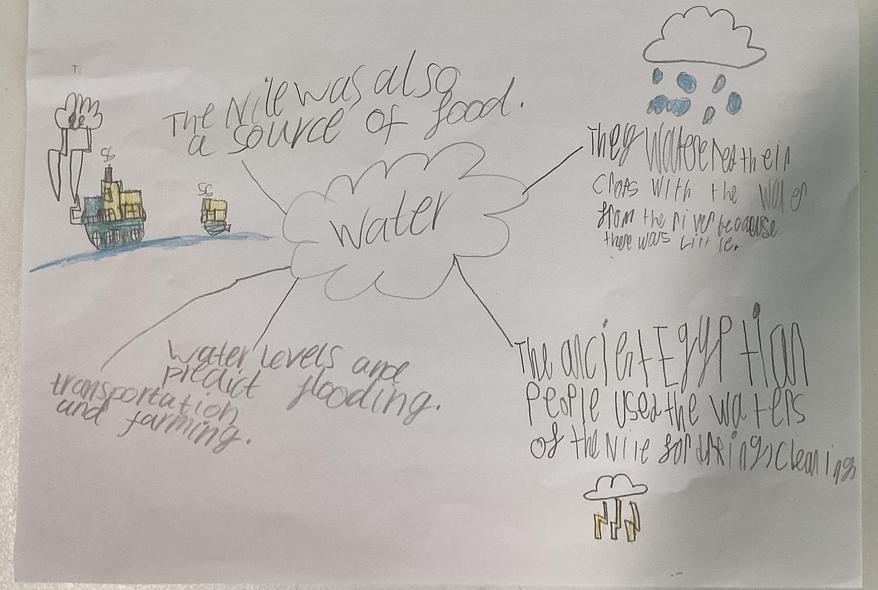 The Nile was also
a source of food.
water
They watered their
crops with the water
from the river because
there was little.
water levels and
predict flooding.
transportation
and farming.
The ancient Egyptian
People used the waters
of the Nile for